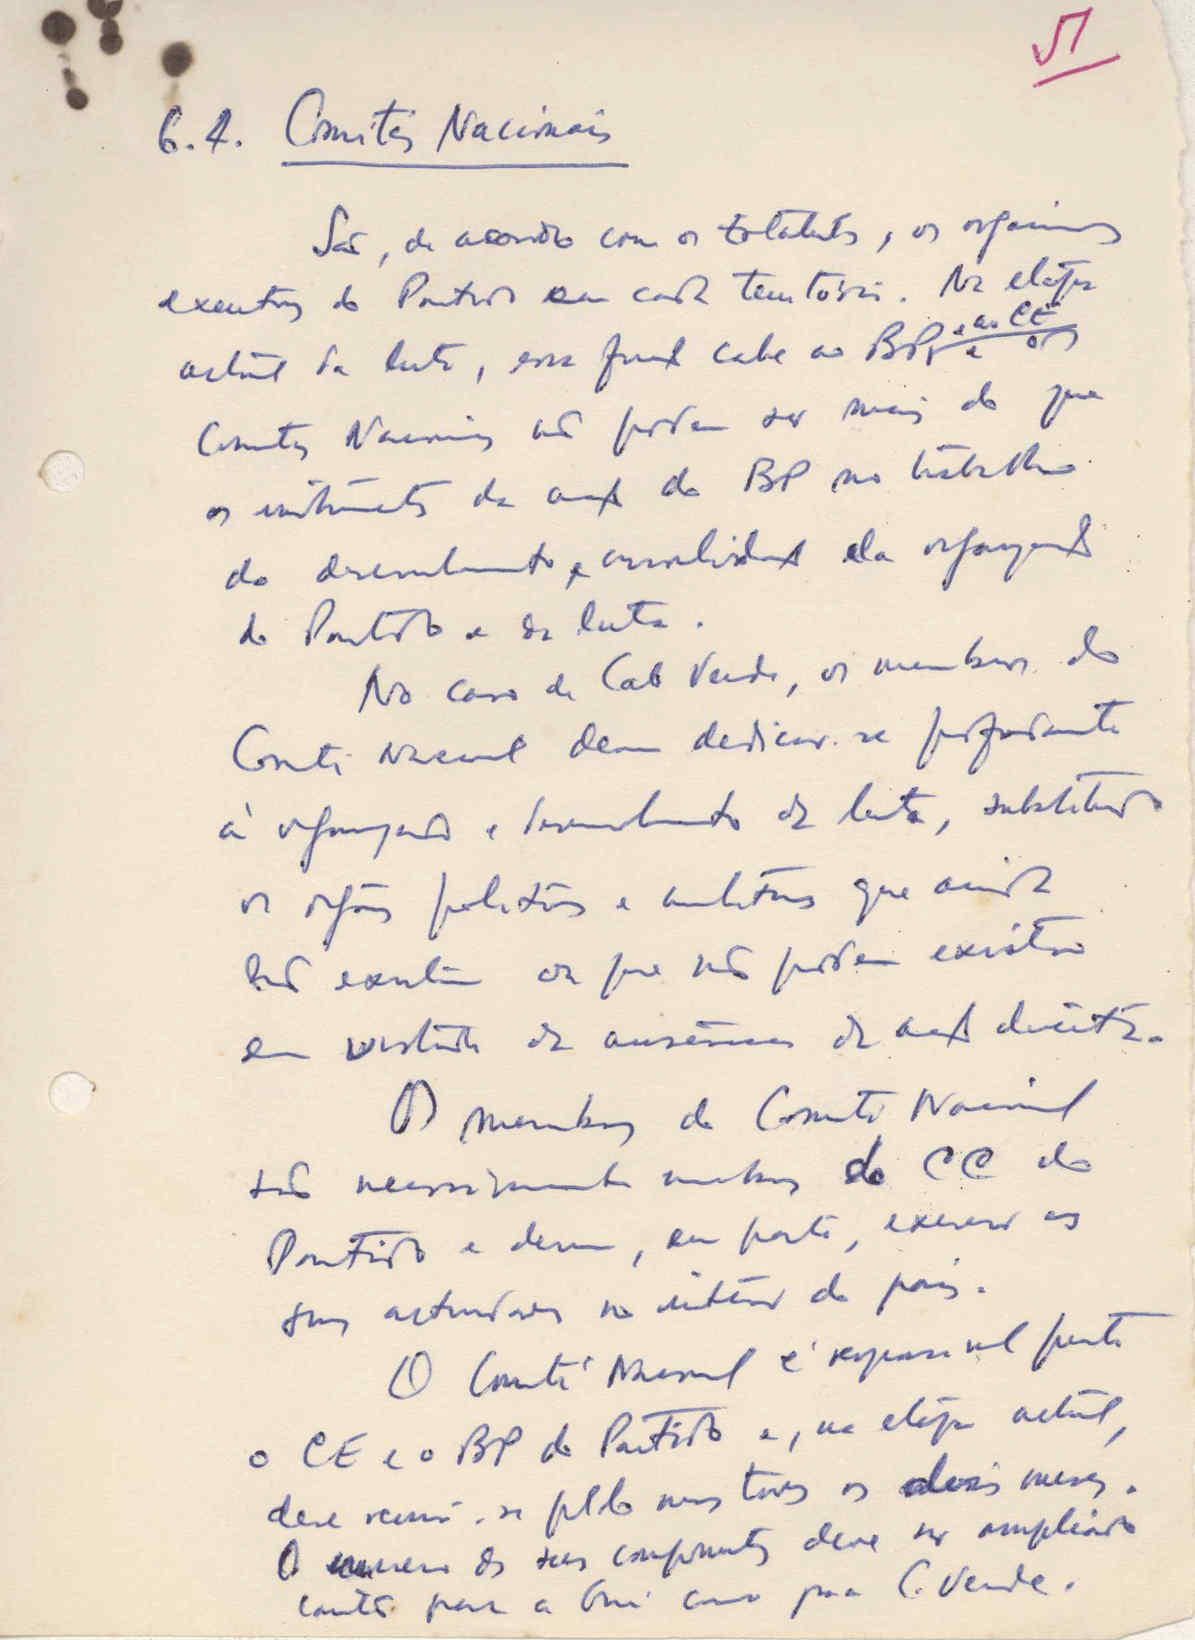 51
6.4. Comités Nacionais
São, de acordo com os Estatutos, os organismos
executivos do Partido em cada território. Na etapa
actual da luta, essa função cabe ao BP, e ao CE e os
Comités Nacionais não podem ser mais do que
os instrumentos da acção do BP no trabalho
do desenvolvimento e consolidação da organização
do Partido e da luta.
No caso de Cabo Verde, os membros do
Comité Nacional devem dedicar-se profundamente
à organização e desenvolvimento da luta, substituindo
os orgãos politicos e militares que ainda
não existem ou que não podem existir
em virtude da ausência da acção directa.
Os membros do Comité Nacional
são necessariamente membros do CC do
Partido e devem, em parte, exercer as
suas actividades no interior do país.
O Comité Nacional é responsavel perante
o CE e o BP do Partido e, na etapa actual,
deve reunir-se pelo menos todos os dois meses.
O número dos seus componentes deve ser ampliado
tanto para a Guiné como para C. Verde.